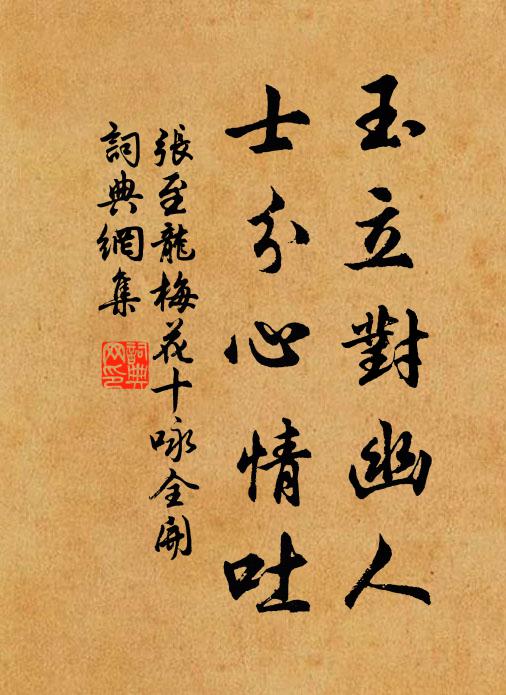 玉立對幽人
士分心情吐
張至龍梅花十咏全開
詞典網集
詞典
网印